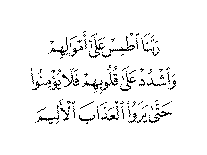 رَبَّنَا ٱطۡمِسۡ عَلَىٰٓ أَمۡوَٰلِهِمۡ
وَٱشۡدُدۡ عَلَىٰ قُلُوبِهِمۡ فَلَا يُؤۡمِنُواْ
حَتَّىٰ يَرَوُاْ ٱلۡعَذَابَ ٱلۡأَلِيمَ